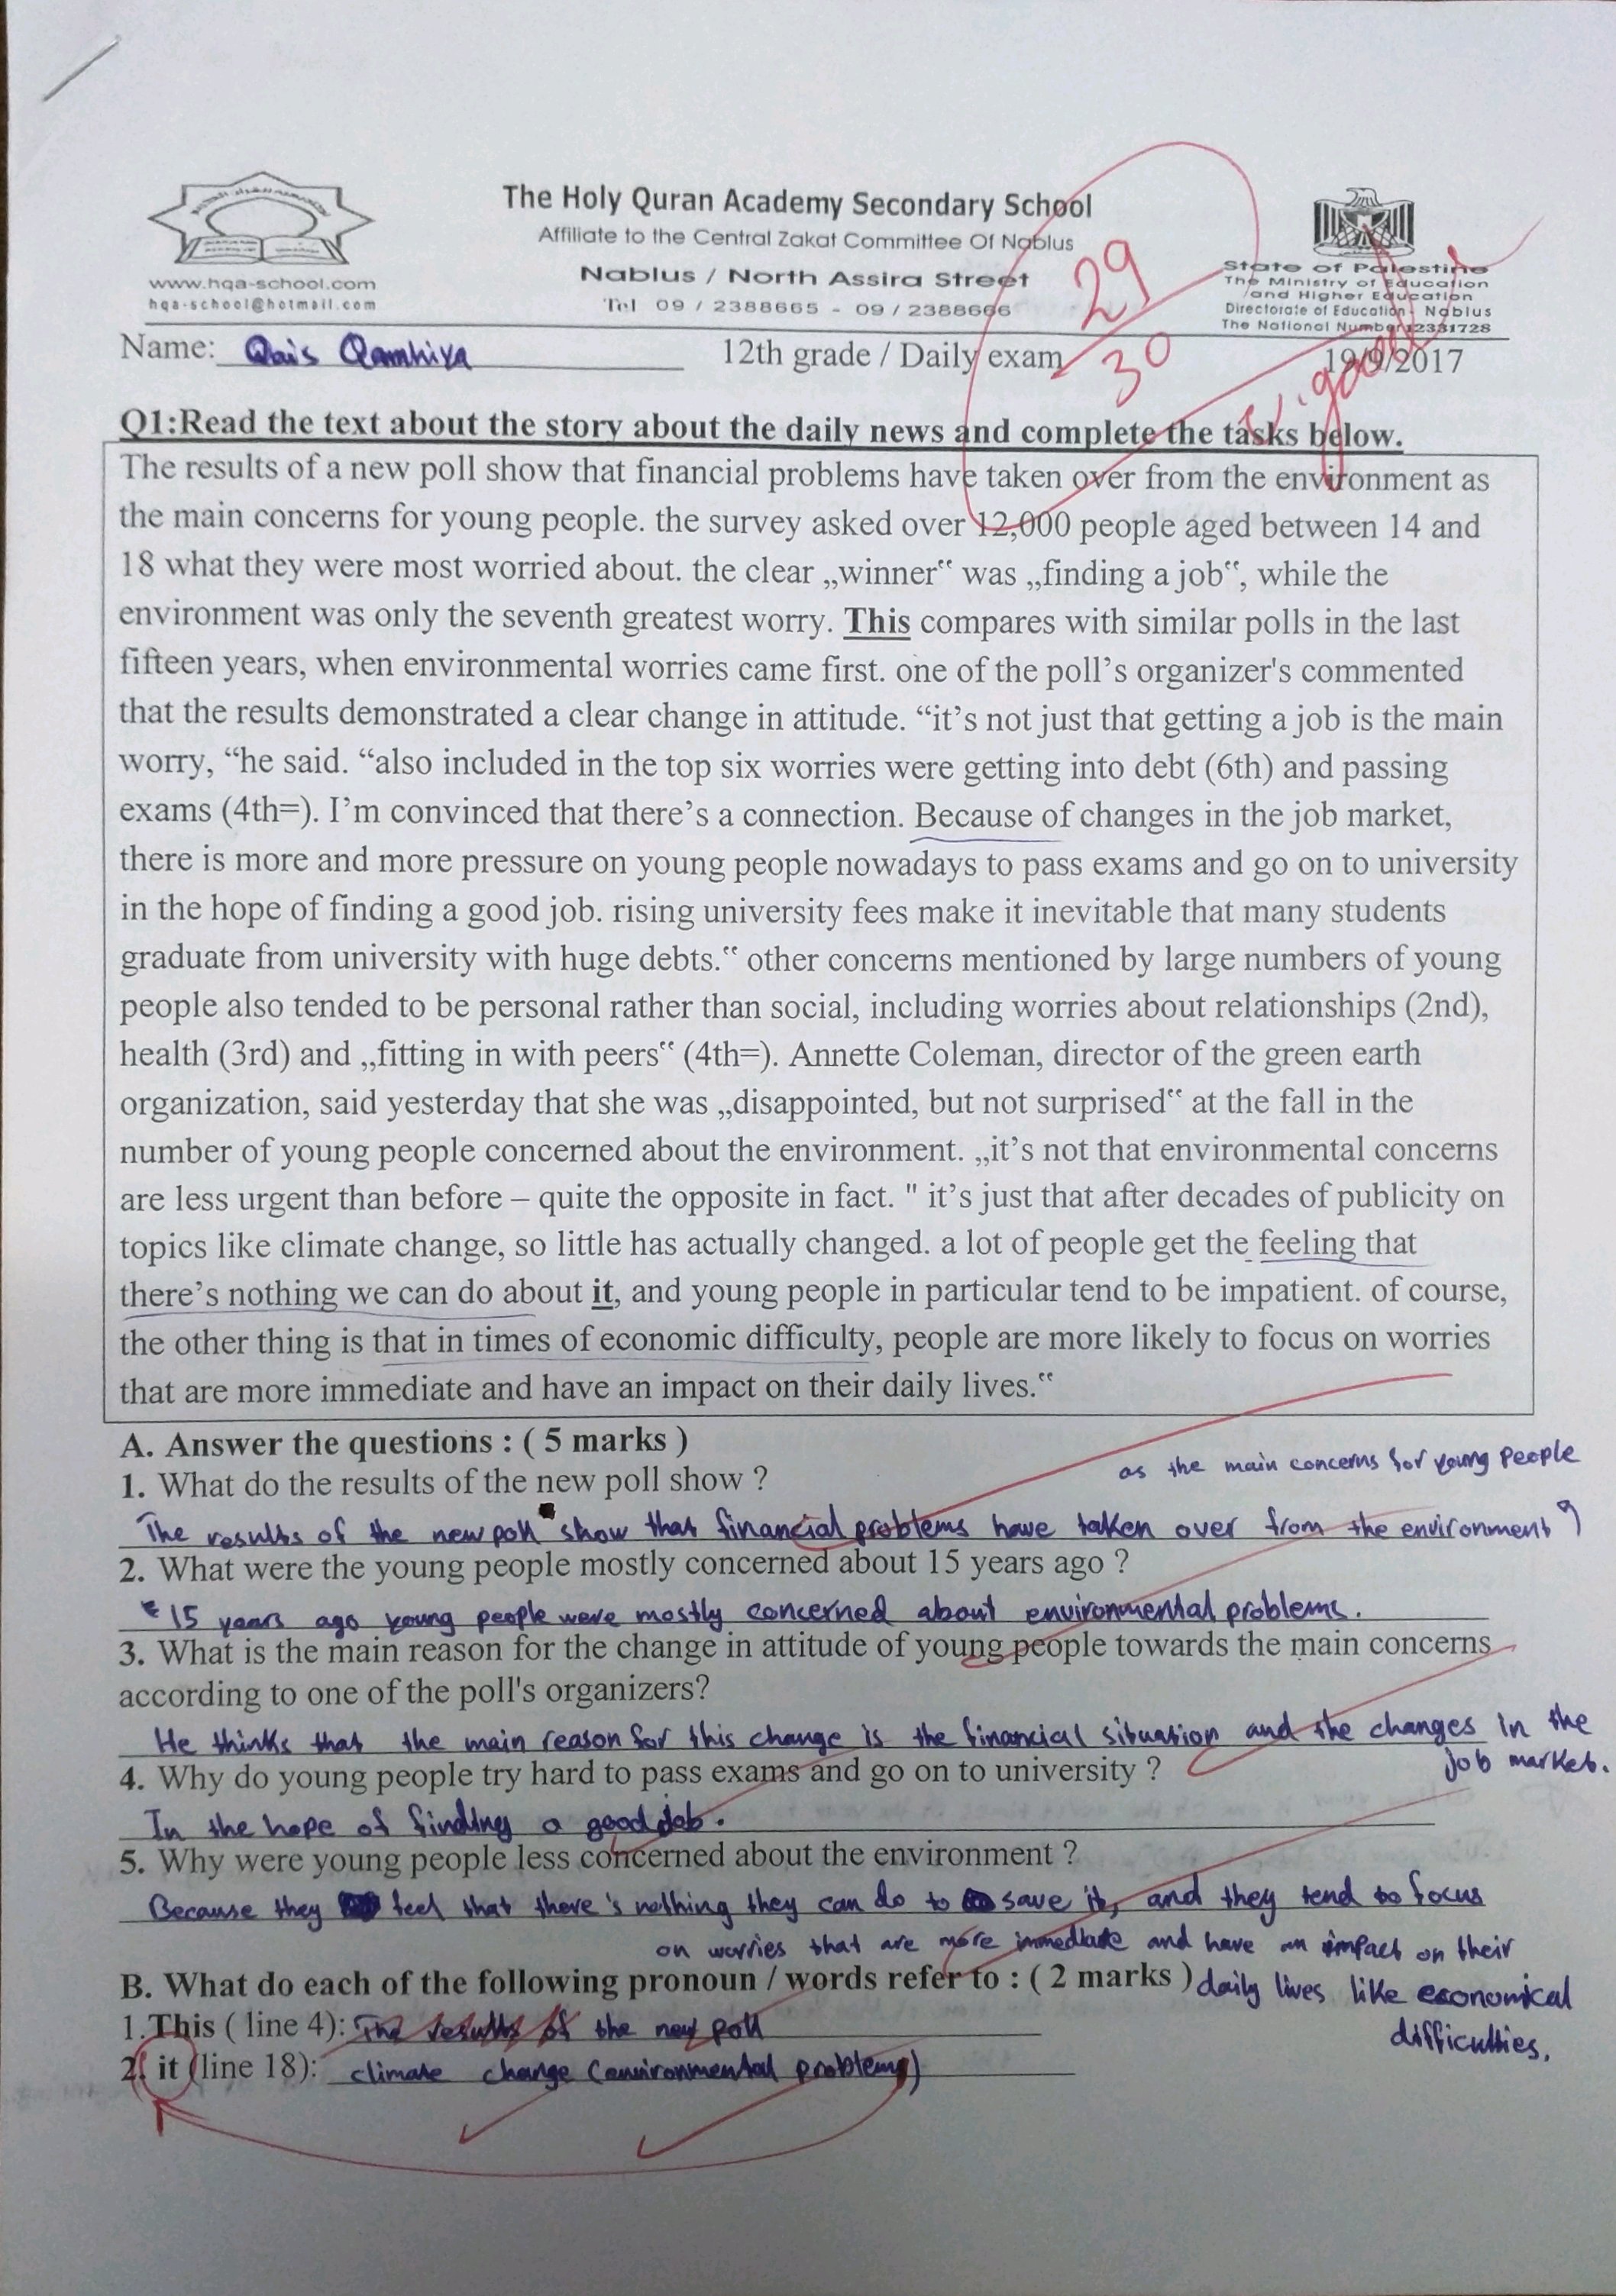 The Holy Quran Academy Secondary School
Affiliate to the Central Zakat Committee Of Nablus
Nablus / North Assira Street
Tel 09 / 2388665 - 09 / 2388666
www.hqa-school.com
hqa-school@hotmail.com
State of Palestine
The Ministry of Education
and Higher Education
Directorate of Education- Nablus
The National Number 12331728
29
30
V. good
Name: Qais Qamhiya 12th grade / Daily exam 19/9/2017
Q1:Read the text about the story about the daily news and complete the tasks below.
The results of a new poll show that financial problems have taken over from the environment as
the main concerns for young people. the survey asked over 12,000 people aged between 14 and
18 what they were most worried about. the clear „winner‟ was „finding a job‟, while the
environment was only the seventh greatest worry. This compares with similar polls in the last
fifteen years, when environmental worries came first. one of the poll’s organizer's commented
that the results demonstrated a clear change in attitude. “it’s not just that getting a job is the main
worry, “he said. “also included in the top six worries were getting into debt (6th) and passing
exams (4th=). I’m convinced that there’s a connection. Because of changes in the job market,
there is more and more pressure on young people nowadays to pass exams and go on to university
in the hope of finding a good job. rising university fees make it inevitable that many students
graduate from university with huge debts.‟ other concerns mentioned by large numbers of young
people also tended to be personal rather than social, including worries about relationships (2nd),
health (3rd) and „fitting in with peers‟ (4th=). Annette Coleman, director of the green earth
organization, said yesterday that she was „disappointed, but not surprised‟ at the fall in the
number of young people concerned about the environment. „it’s not that environmental concerns
are less urgent than before – quite the opposite in fact. " it’s just that after decades of publicity on
topics like climate change, so little has actually changed. a lot of people get the feeling that
there’s nothing we can do about it, and young people in particular tend to be impatient. of course,
the other thing is that in times of economic difficulty, people are more likely to focus on worries
that are more immediate and have an impact on their daily lives.‟
A. Answer the questions : ( 5 marks )
1. What do the results of the new poll show ?
as the main concerns for young people
The results of the new poll show that financial problems have taken over from the environment
2. What were the young people mostly concerned about 15 years ago ?
15 years ago young people were mostly concerned about environmental problems.
3. What is the main reason for the change in attitude of young people towards the main concerns
according to one of the poll's organizers?
He thinks that the main reason for this change is the financial situation and the changes in the
job market.
4. Why do young people try hard to pass exams and go on to university ?
In the hope of finding a good job.
5. Why were young people less concerned about the environment ?
Because they feel that there's nothing they can do to save it, and they tend to focus
on worries that are more immediate and have an impact on their
daily lives like economical
difficulties.
B. What do each of the following pronoun / words refer to : ( 2 marks )
1.This ( line 4): The results of the new poll
2. it (line 18): climate change (environmental problems)